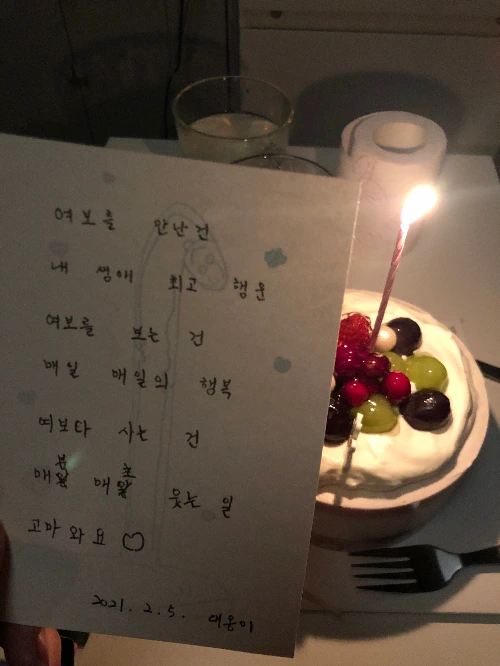 여보를 만난건
내 생애 최고 행운
여보를 보는 건
매일 매일의 행복
여보랑 사는 건
매분 매초 웃는 일
고마와요 ♡
2021. 2. 5.